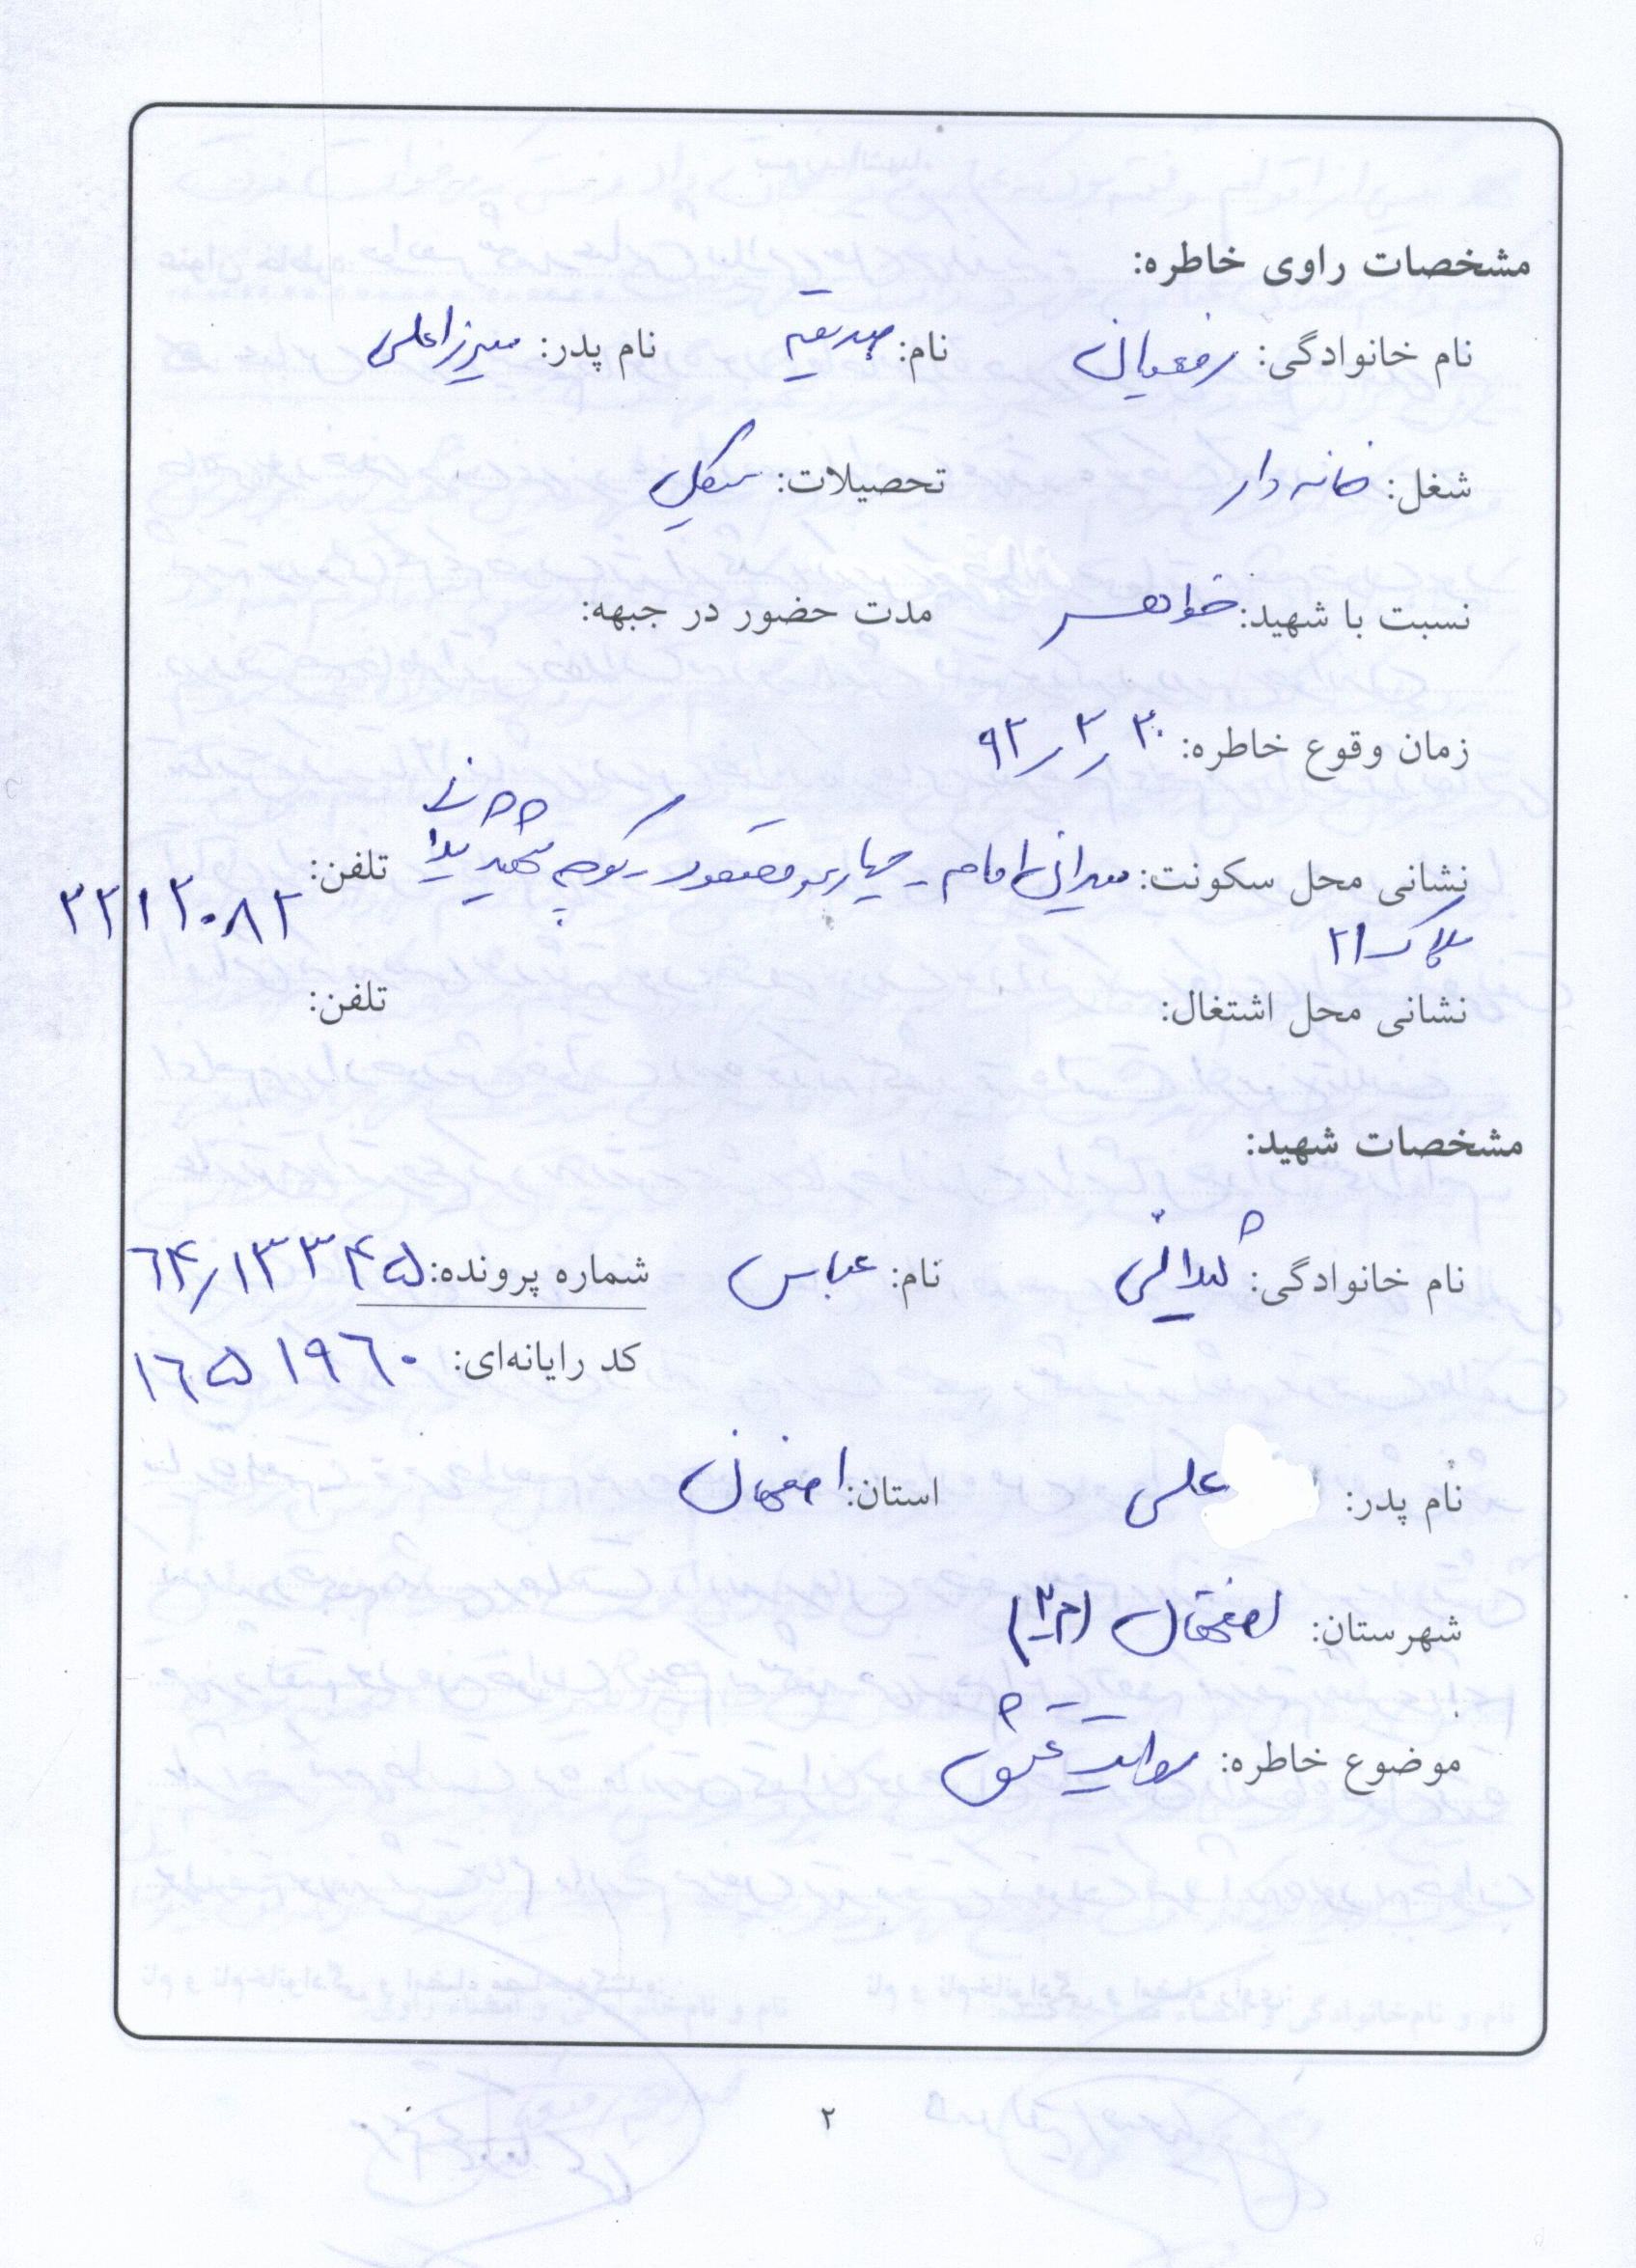 مشخصات راوی خاطره:
نام خانوادگی: رفیعیان نام: صدیقه نام پدر: میرزاعلی
شغل: خانه دار تحصیلات: سیکل
نسبت با شهید: خواهر مدت حضور در جبهه:
زمان وقوع خاطره: ۹۲/۳/۳۰
نشانی محل سکونت: میدان امام - چهارسو مقصود - کوچه شهید تلفن: ۳۲۱۳۰۸۲
پلاک ۲۱
نشانی محل اشتغال: تلفن:
مشخصات شهید:
نام خانوادگی: نام: عباس شماره پرونده: ۶۴/۱۳۳۴۵
کد رایانه‌ای: ۱۶۵۱۹۶۰
نام پدر: علی استان: اصفهان
شهرستان: اصفهان (م۳)
موضوع خاطره: روایت عشق
۲